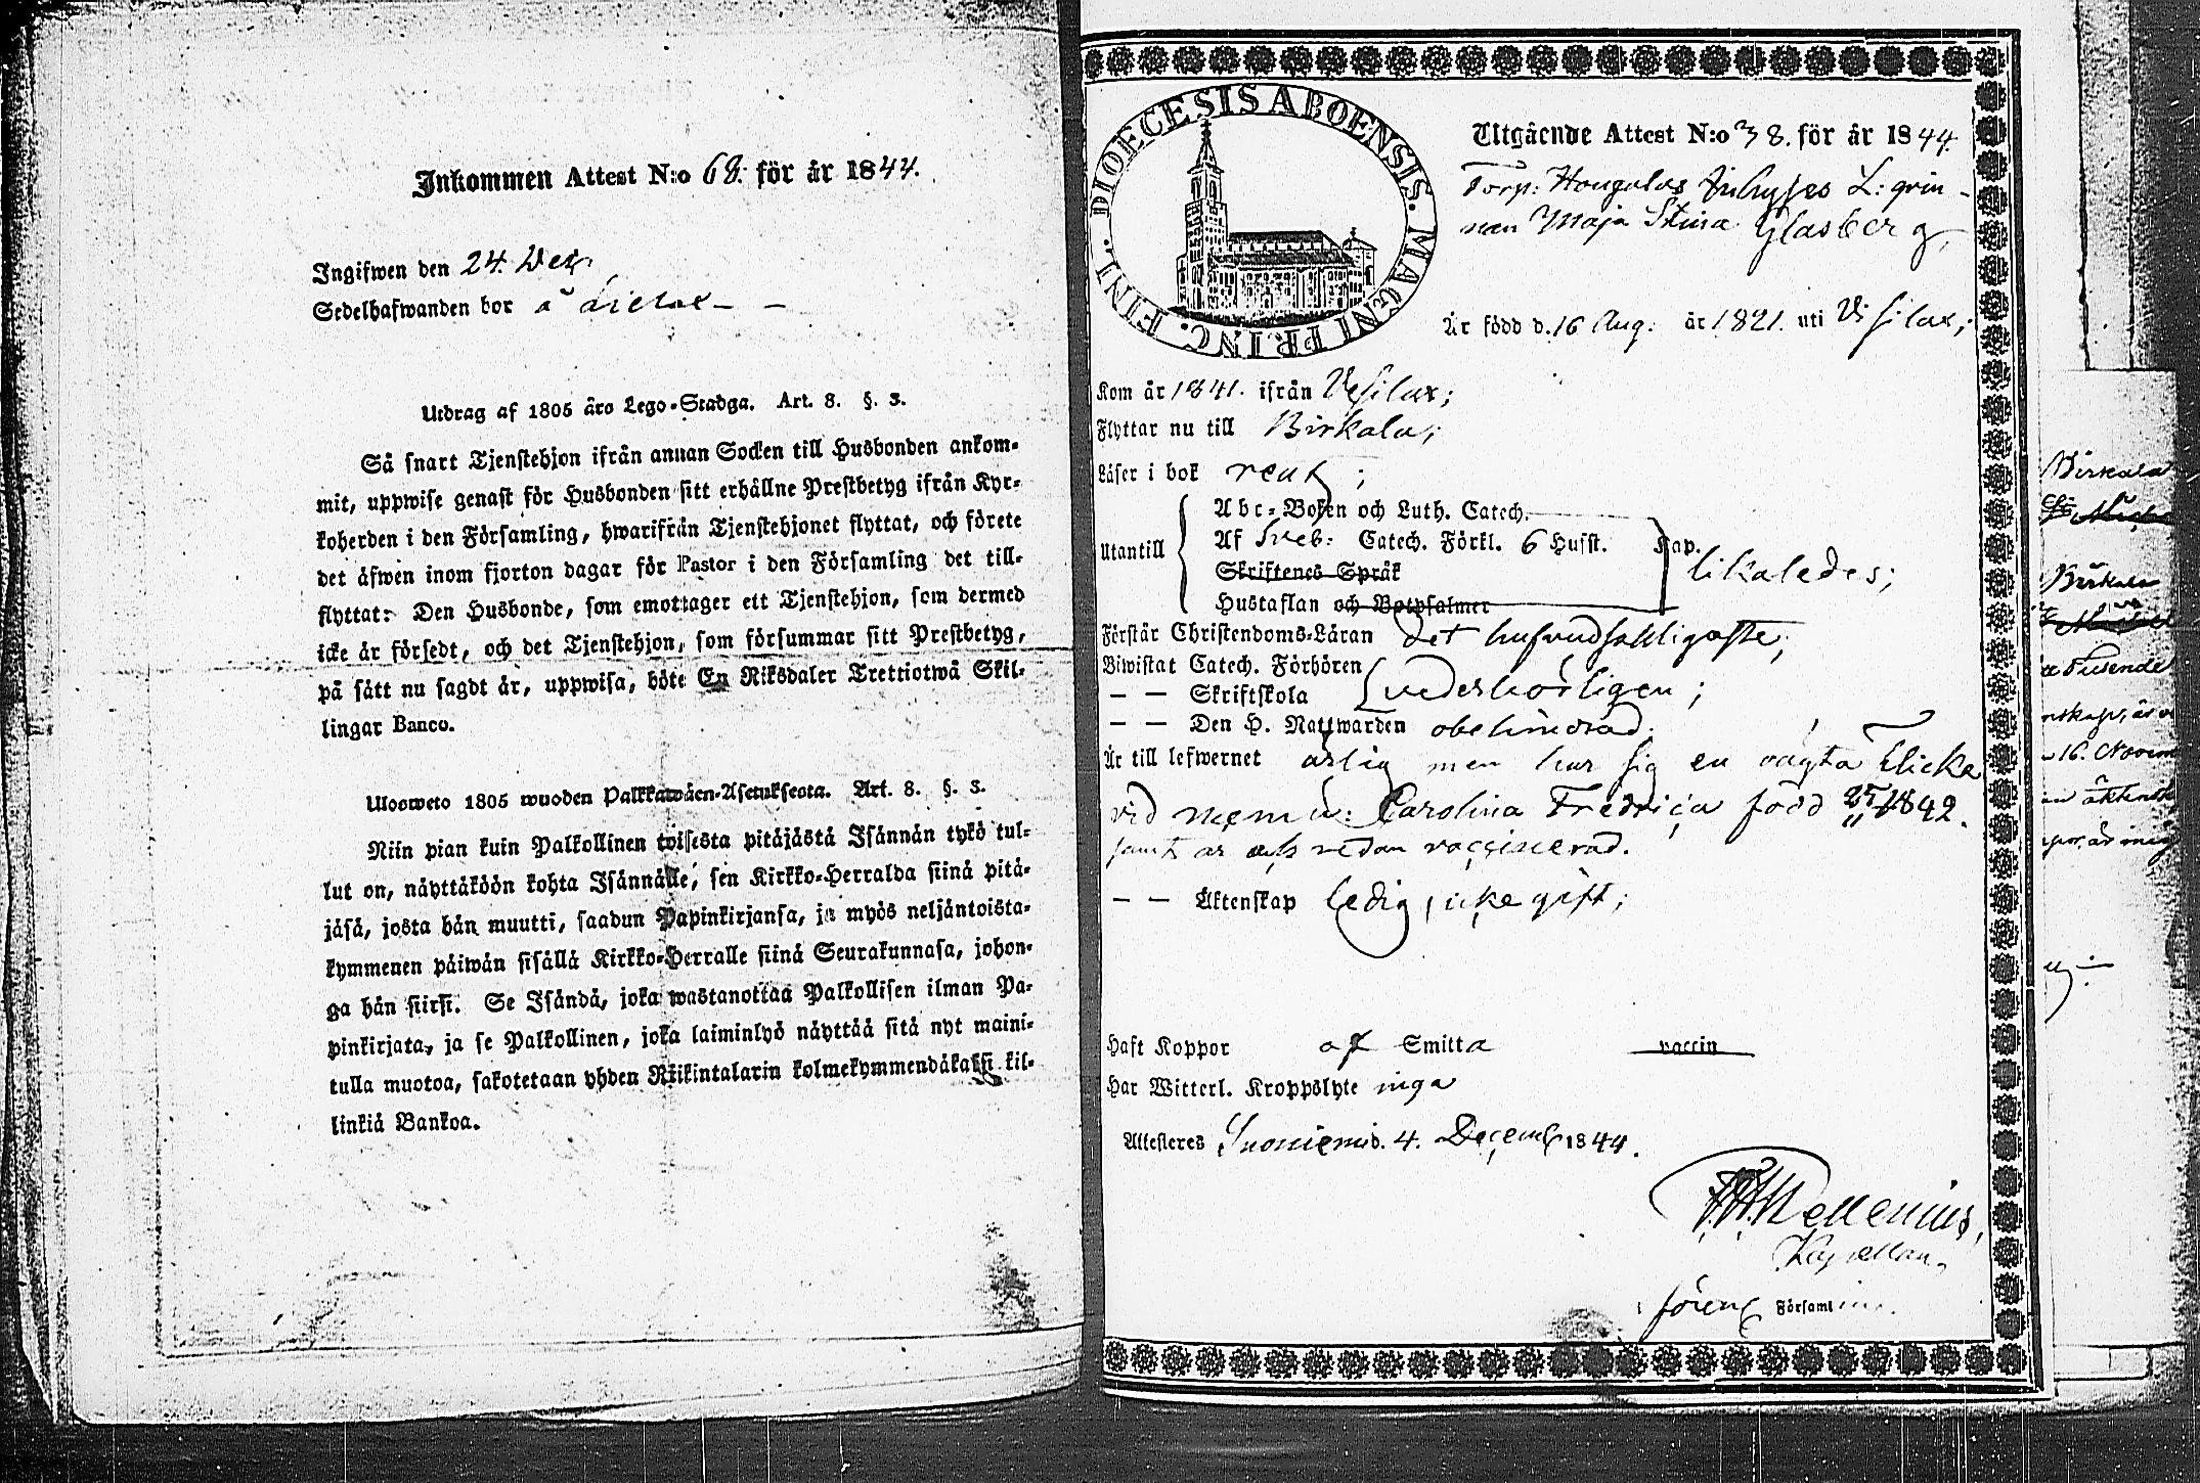 Inkommen Attest N:o 68. för år 1844.
Ingifwen den 24. Dec
Sedelhafwanden bor å
Utdrag af 1805 års Lego-Stadga. Art. 8. §. 3.
Så snart Tjenstehjon ifrån annan Socken till Husbonden ankom-
mit, uppwise genast för Husbonden sitt erhållne Prestbetyg ifrån Kyr-
koherden i den Församling, hwarifrån Tjenstehjonet flyttat, och förete
det äfwen inom fjorton dagar för Pastor i den Församling det till-
flyttat: Den Husbonde, som emottager ett Tjenstehjon, som dermed
icke är försedt, och det Tjenstehjon, som försummar sitt Prestbetyg,
på sätt nu sagdt är, uppwisa, böte En Riksdaler Trettiotwå Skil-
lingar Banco.
Ulosweto 1805 wuoden Palkkawäen-Asetuksesta. Art. 8. §. 3.
Niin pian kuin Palkollinen toisesta pitäjästä Isännän tykö tul-
lut on, näyttäköön kohta Isännälle, sen Kirkko-Herralda siinä pitä-
jäsä, josta hän muutti, saadun Papinkirjansa, ja myös neljäntoista-
kymmenen päiwän sisällä Kirkko-Herralle siinä Seurakunnasa, johon-
ga hän siirsi. Se Isändä, joka wastanottaa Palkollisen ilman Pa-
pinkirjata, ja se Palkollinen, joka laiminlyö näyttää sitä nyt maini-
tulla muotoa, sakotetaan yhden Riikintalarin kolmekymmendäkaksi kil-
linkiä Bankoa.
DIOECESIS ABOENSIS. MAGNI PRINC. FINL.
Utgående Attest N:o 38. för år 1844.
Torp: Hongolas L: qvin-
nan Maja Stina Glasberg,
Är född d. 16 Aug. år 1821. uti Vesilax;
Kom år 1841. ifrån Vesilax;
Flyttar nu till Birkala;
Läser i bok rent;
Abc-Boken och Luth. Catech.
Utantill Af Sveb: Catech. Förkl. 6 Hufst. Kap.
Skriftenes Språk likaledes;
Hustaflan och Botpsalmer
Förstår Christendoms-Läran det hufvudsakligaste;
Biwistat Catech. Förhören
— — Skriftskola vederbörligen;
— — Den H. Nattwarden obehindrad.
Är till lefwernet ärlig men har sig en oägta Flicka
vid namn: Carolina Fredrica född 1842.
samt är redan vaccinerad.
— — Äktenskap ledig, icke gift;
Haft Koppor af Smitta vaccin
Har Witterl. Kroppslyte inga
Attesteres Suoniemi d. 4. Decemb 1844.
Kapellan.
Församl
Birkala
Birkala